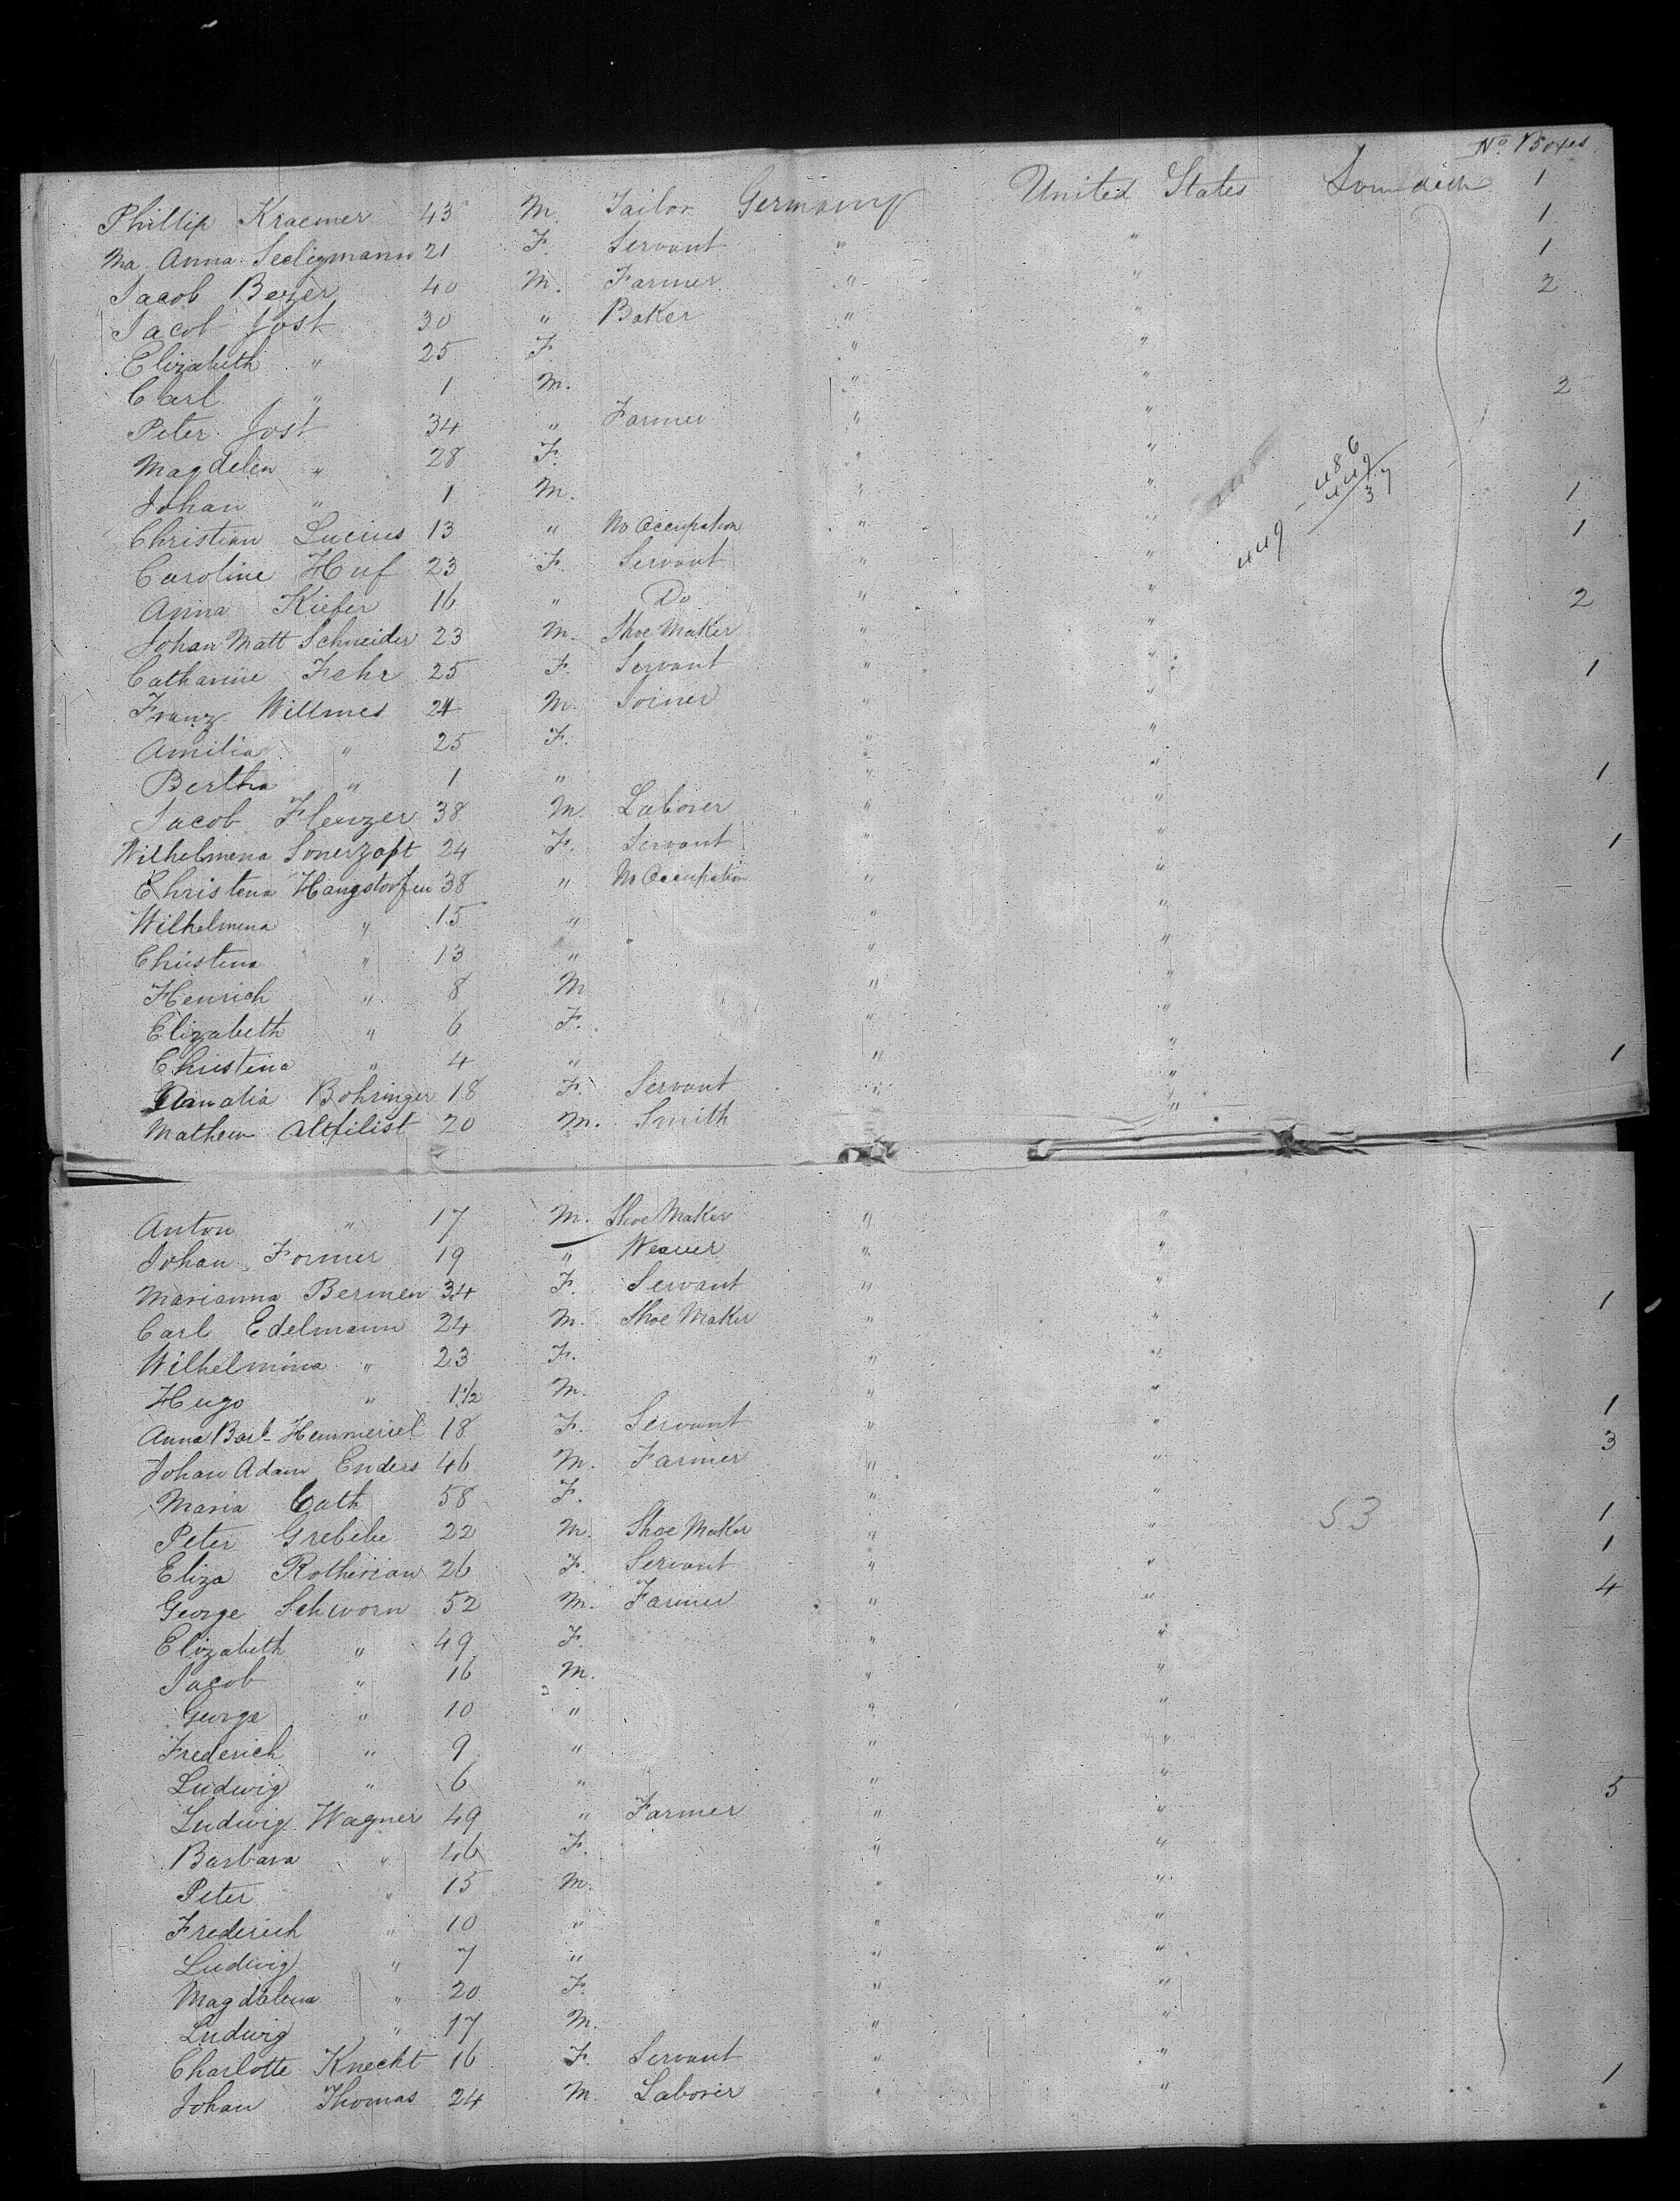 No. Boxes
Phillip Kraemer 43 M. Tailor Germany United States 1
Ma Anna Seeligmann 21 F. Servant " " 1
Jacob Beyer 40 M. Farmer " " 1
Jacob Jost 30 " Baker " " 2
Elizabeth " 25 F. " "
Carl " 1 M. " "
Peter Jost 34 " Farmer " " 2
Magdelen " 28 F. " "
Johan " 1 M. " "
Christian Lucius 13 " No Occupation " " 1
Caroline Huf 23 F. Servant " " 1
Anna Kiefer 16 " Do " "
Johan Matt Schneider 23 M. Shoe Maker " " 2
Catharine Fehr 25 F. Servant " "
Franz Willmes 24 M. Joiner " " 1
Amilia " 25 F. " "
Bertha " 1 " " "
Jacob Flenzer 38 M. Laborer " " 1
Wilhelmena 24 F. Servant " "
Christena Hangstorfen 38 " No Occupation " " 1
Wilhelmena " 15 " " "
Christena " 13 " " "
Henrich " 8 M " "
Elizabeth " 6 F. " "
Christina " 4 " " "
Amalia Bohringer 18 F. Servant " " 1
Mathew Altfilist 20 M. Smith "
486
449
37
449
Anton " 17 M. Shoe Maker " "
Johan Former 19 " Weaver " "
Marianna Bermen 34 F. Servant " "
Carl Edelmann 24 M. Shoe Maker " " 1
Wilhelmina " 23 F. " "
Hugo " 1 1/2 M. " "
Anna Barb Hemmeriel 18 F. Servant " " 1
Johan Adam Enders 46 M. Farmer " " 3
Maria Cath 58 F. " "
53
Peter Grebele 22 M. Shoe Maker " " 1
Eliza Rotherian 26 F. Servant " " 1
George Schworn 52 M. Farmer " " 4
Elizabeth " 49 F. " "
Jacob " 16 M. " "
George " 10 " " "
Frederich " 9 " " "
Ludwig " 6 " " "
Ludwig Wagner 49 " Farmer " " 5
Barbara " 46 F. " "
Peter " 15 M. " "
Frederich " 10 " " "
Ludwig " 7 " " "
Magdalena " 20 F. " "
Ludwig " 17 M. " "
Charlotte Knecht 16 F. Servant " "
Johan Thomas 24 M. Laborer " " 1